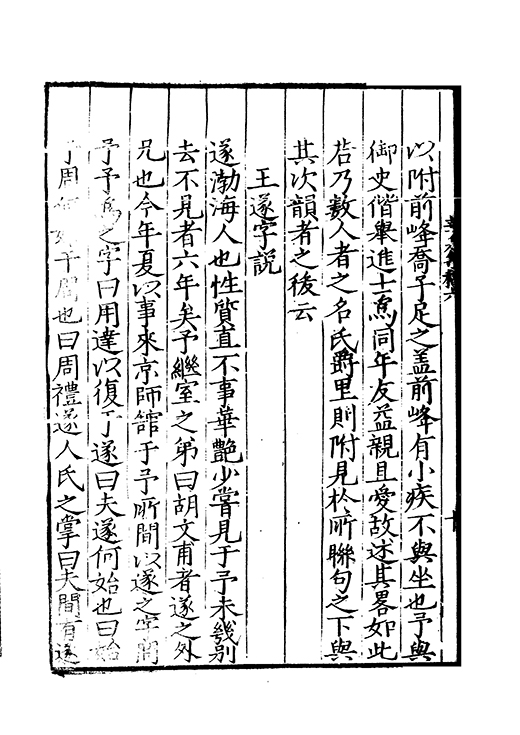 以附前峰喬子足之盖前峰有小疾不與坐也予與
御史偕舉進士爲同年友益親且愛故述其畧如此
若乃數人者之名氏爵里則附見於所聯句之下與
其次韻者之後云
王遂字説
遂渤海人也性質直不事華艷少嘗見于予未幾别
去不見者六年矣予繼室之弟曰胡文甫者遂之外
兄也今年夏以事來京師舘于予所間以遂之字問
予予爲之字曰用達以復于遂曰夫遂何始也曰始
于周何始乎周也曰周禮遂人氏之掌曰夫間有遂